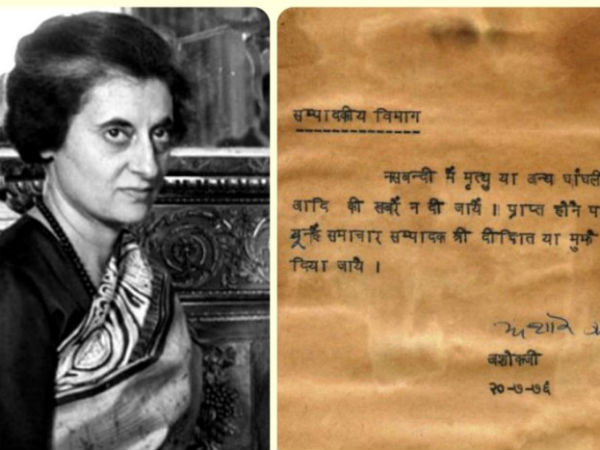 सम्पादकीय विभाग
नसबन्दी में मृत्यु या अन्य धाँधली
आदि की खबरें न दी जायें । प्राप्त होने प
इन्हें समाचार सम्पादक श्री दीक्षित या मुझे
दिया जाये ।
अशोक
अशोकजी
२०-७-७६